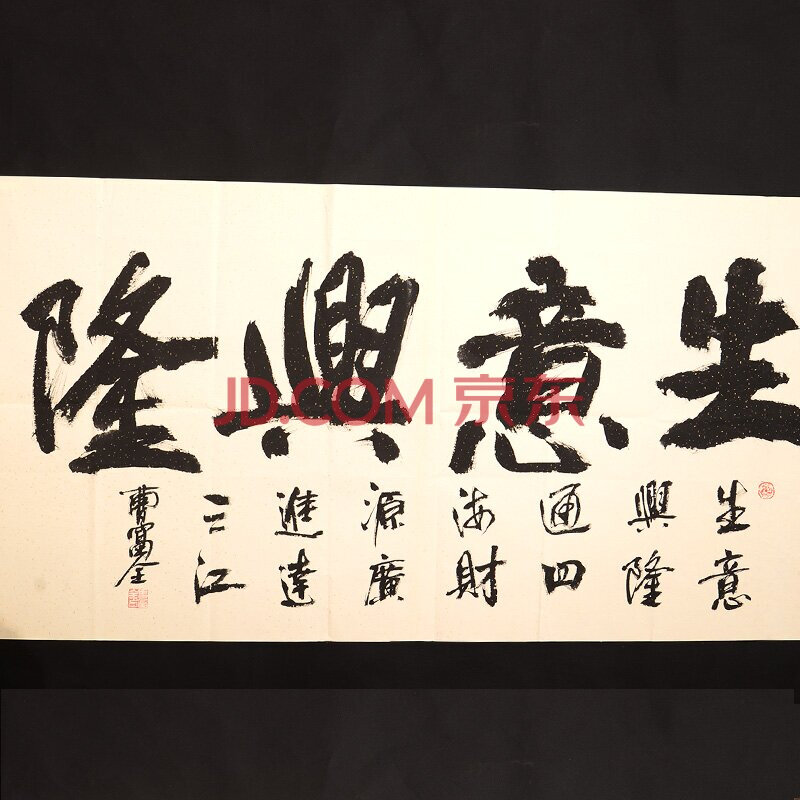 生意興隆
生意
興隆
通四
海財
源廣
進達
三江
曹富全
JD.COM 京东